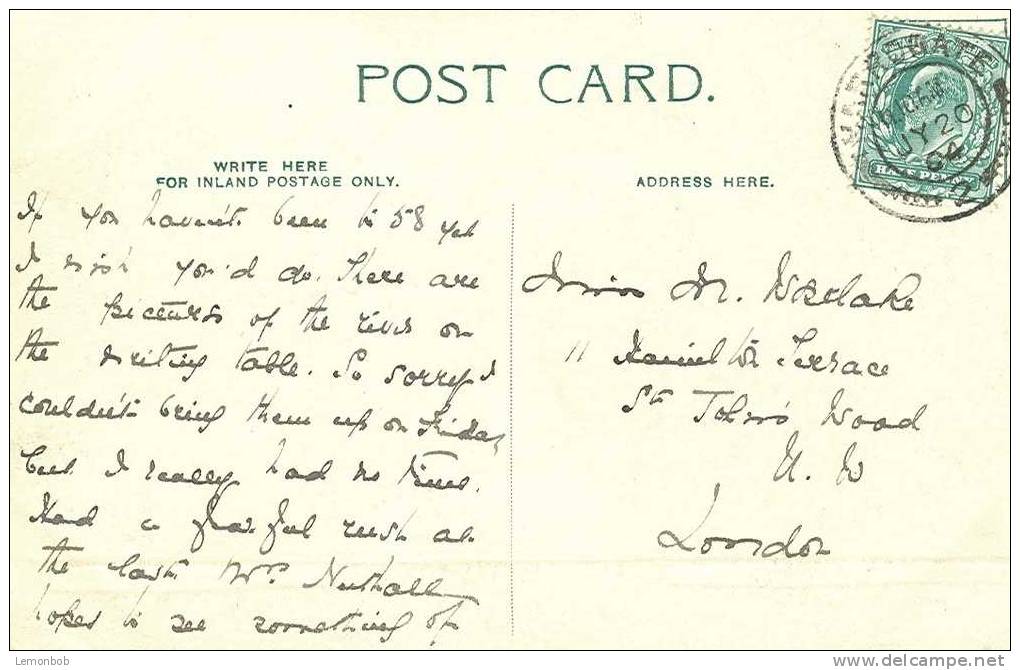 POST CARD.
WRITE HERE
FOR INLAND POSTAGE ONLY.
ADDRESS HERE.
HARROGATE
JY 20
04
HALFPENNY
If you haven't been to 58 yet
I wish you'd do. There are
the pictures of the river on
the writing table. So sorry I
couldn't bring them up on Friday
but I really had no time.
Had a fearful rush at
the last. Mrs Nuthall
hopes to see something of
Miss M. Westlake
11 Hamilton Terrace
St John's Wood
N. W
London
Lemonbob
www.delcampe.net